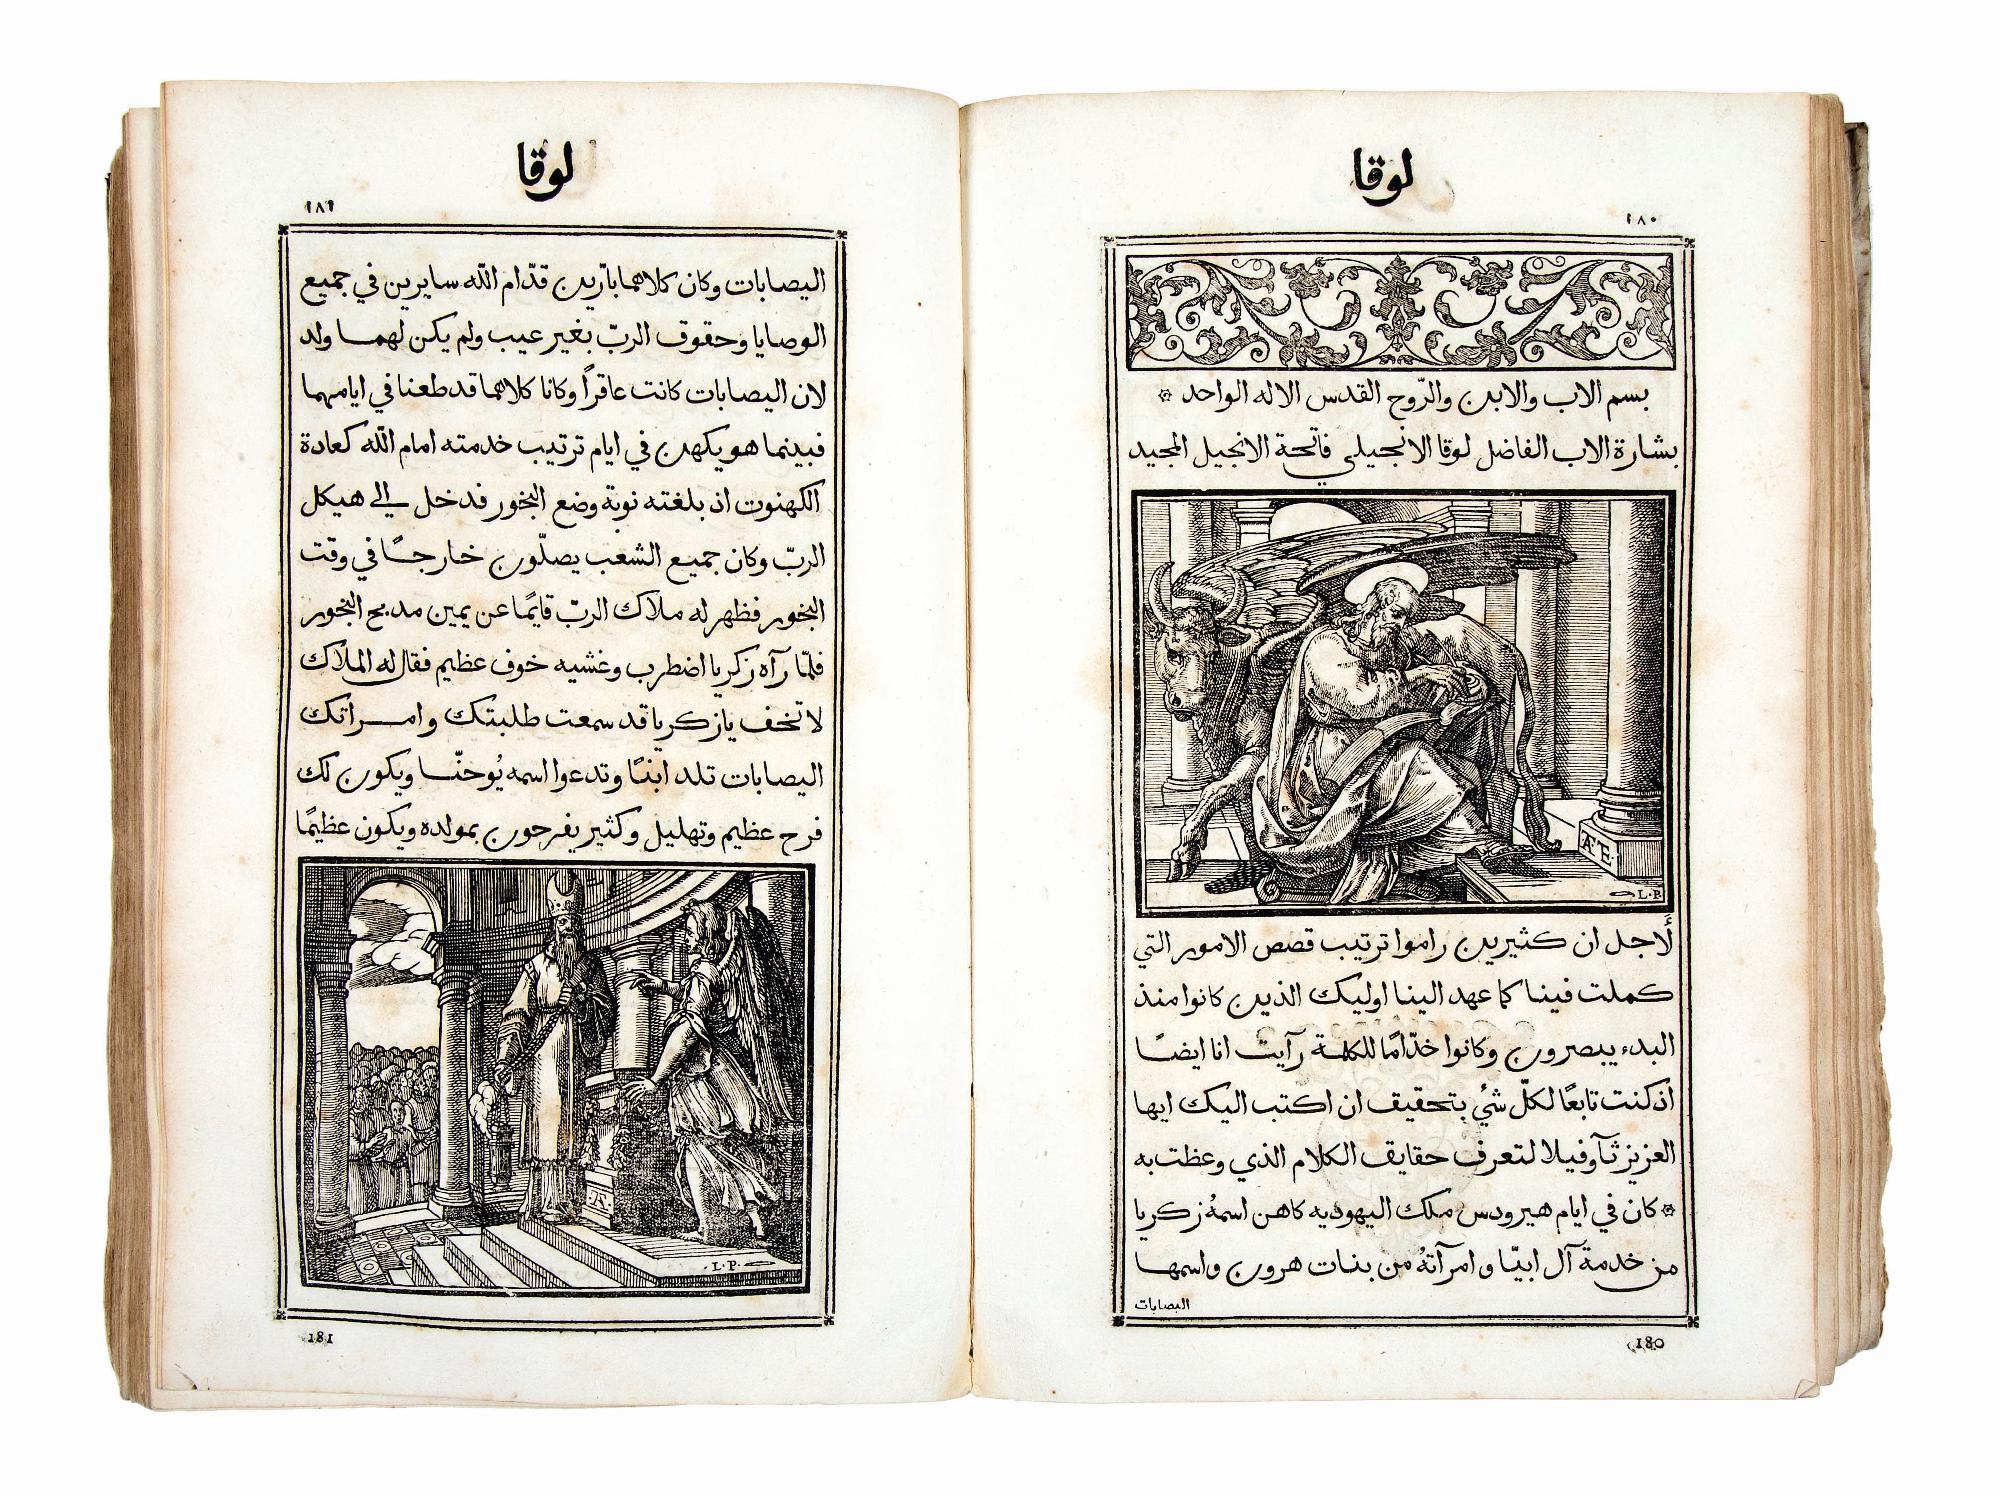 لوقا
١٨٠
بسم الاب والابن والرّوح القدس الاله الواحد
بشارة الاب الفاضل لوقا الانجيلي فاتحة الانجيل المجيد
Æ E.
L.P.
لأجل ان كثيرين راموا ترتيب قصص الامور التي
كملت فينا كما عهد الينا اوليك الذين كانوا منذ
البدء يبصرون وكانوا خدّامًا للكلمة رآيت انا ايضًا
اذ كنت تابعًا لكلّ شئ بتحقيق ان اكتب اليك ايها
العزيز ثآوفيلا لتعرف حقايق الكلام الذي وعظت به
كان في ايام هيرودس ملك اليهوديه كاهن اسمهُ زكريا
من خدمة آل ابيّا وامرآتهُ من بنات هرون واسمها
اليصابات
180
لوقا
١٨١
اليصابات وكان كلاهما بآرين قدّام اللّه سايرين في جميع
الوصايا وحقوق الربّ بغير عيب ولم يكن لهما ولد
لان اليصابات كانت عاقرًا وكانا كلاهما قد طعنا في ايامهما
فبينما هو يكهن في ايام ترتيب خدمته امام اللّه كعادة
الكهنوت اذ بلغته نوبة وضع البخور فدخل الي هيكل
الربّ وكان جميع الشعب يصلّون خارجًا في وقت
البخور فظهر له ملاك الربّ قايمًا عن يمين مذبح البخور
فلمّا رآه زكريا اضطرب وغشيه خوف عظيم فقال له الملاك
لا تخف يا زكريا قد سمعت طلبتك وامراتك
اليصابات تلد ابنًا وتدعوا اسمه يُوحنّا ويكون لك
فرح عظيم وتهليل وكثير يفرحون بمولده ويكون عظيمًا
L.P.
181